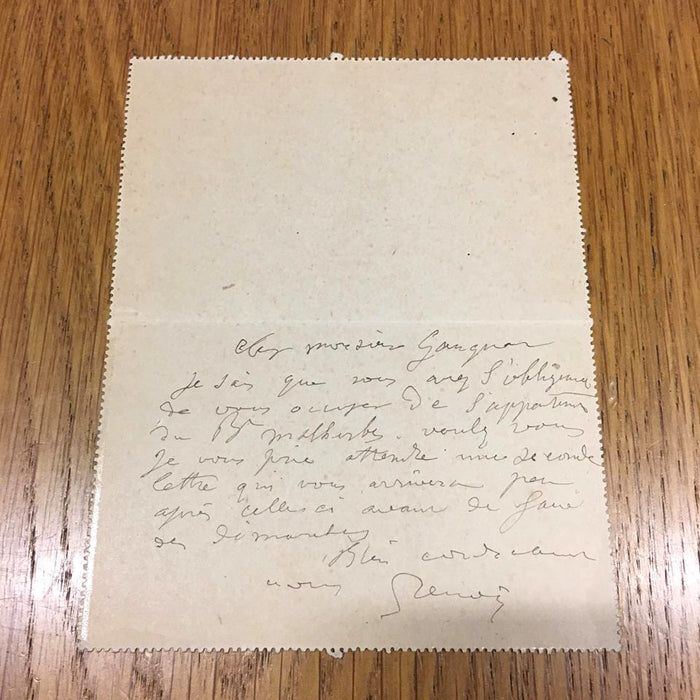 cher monsieur Gangnat
je sais que vous avez l'obligeance
de vous occuper de l'appartement
du Bd malherbes. voulez vous
je vous prie attendre une seconde
lettre qui vous arrivera peu
après celle ci avant de faire
des démarches
Bien cordialement
vous Renoir